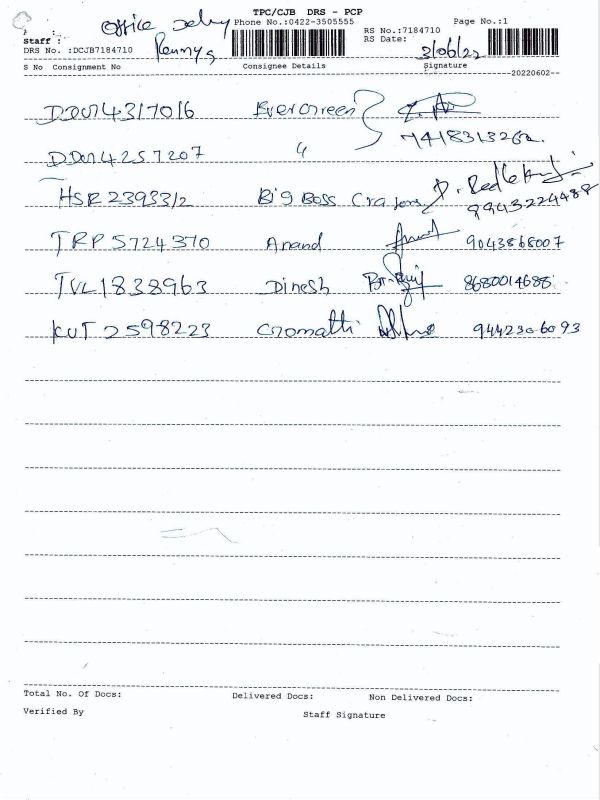 TPC/CJB DRS - PCP
office Phone No.:0422-3505555 Page No.:1
Staff : RS No.:7184710
DRS No. :DCJB7184710 RS Date: 3/06/22
S No Consignment No Consignee Details Signature
--20220602--
4317016 Evergreen
7418313262
4257207 "
HSR2393312 Big Boss
9943224488
TRP5724370 Anand 9043868007
TVL1838963 Dinesh 8680014688
KUT2598223 Gomathi 9442306093
Total No. Of Docs: Delivered Docs: Non Delivered Docs:
Verified By Staff Signature